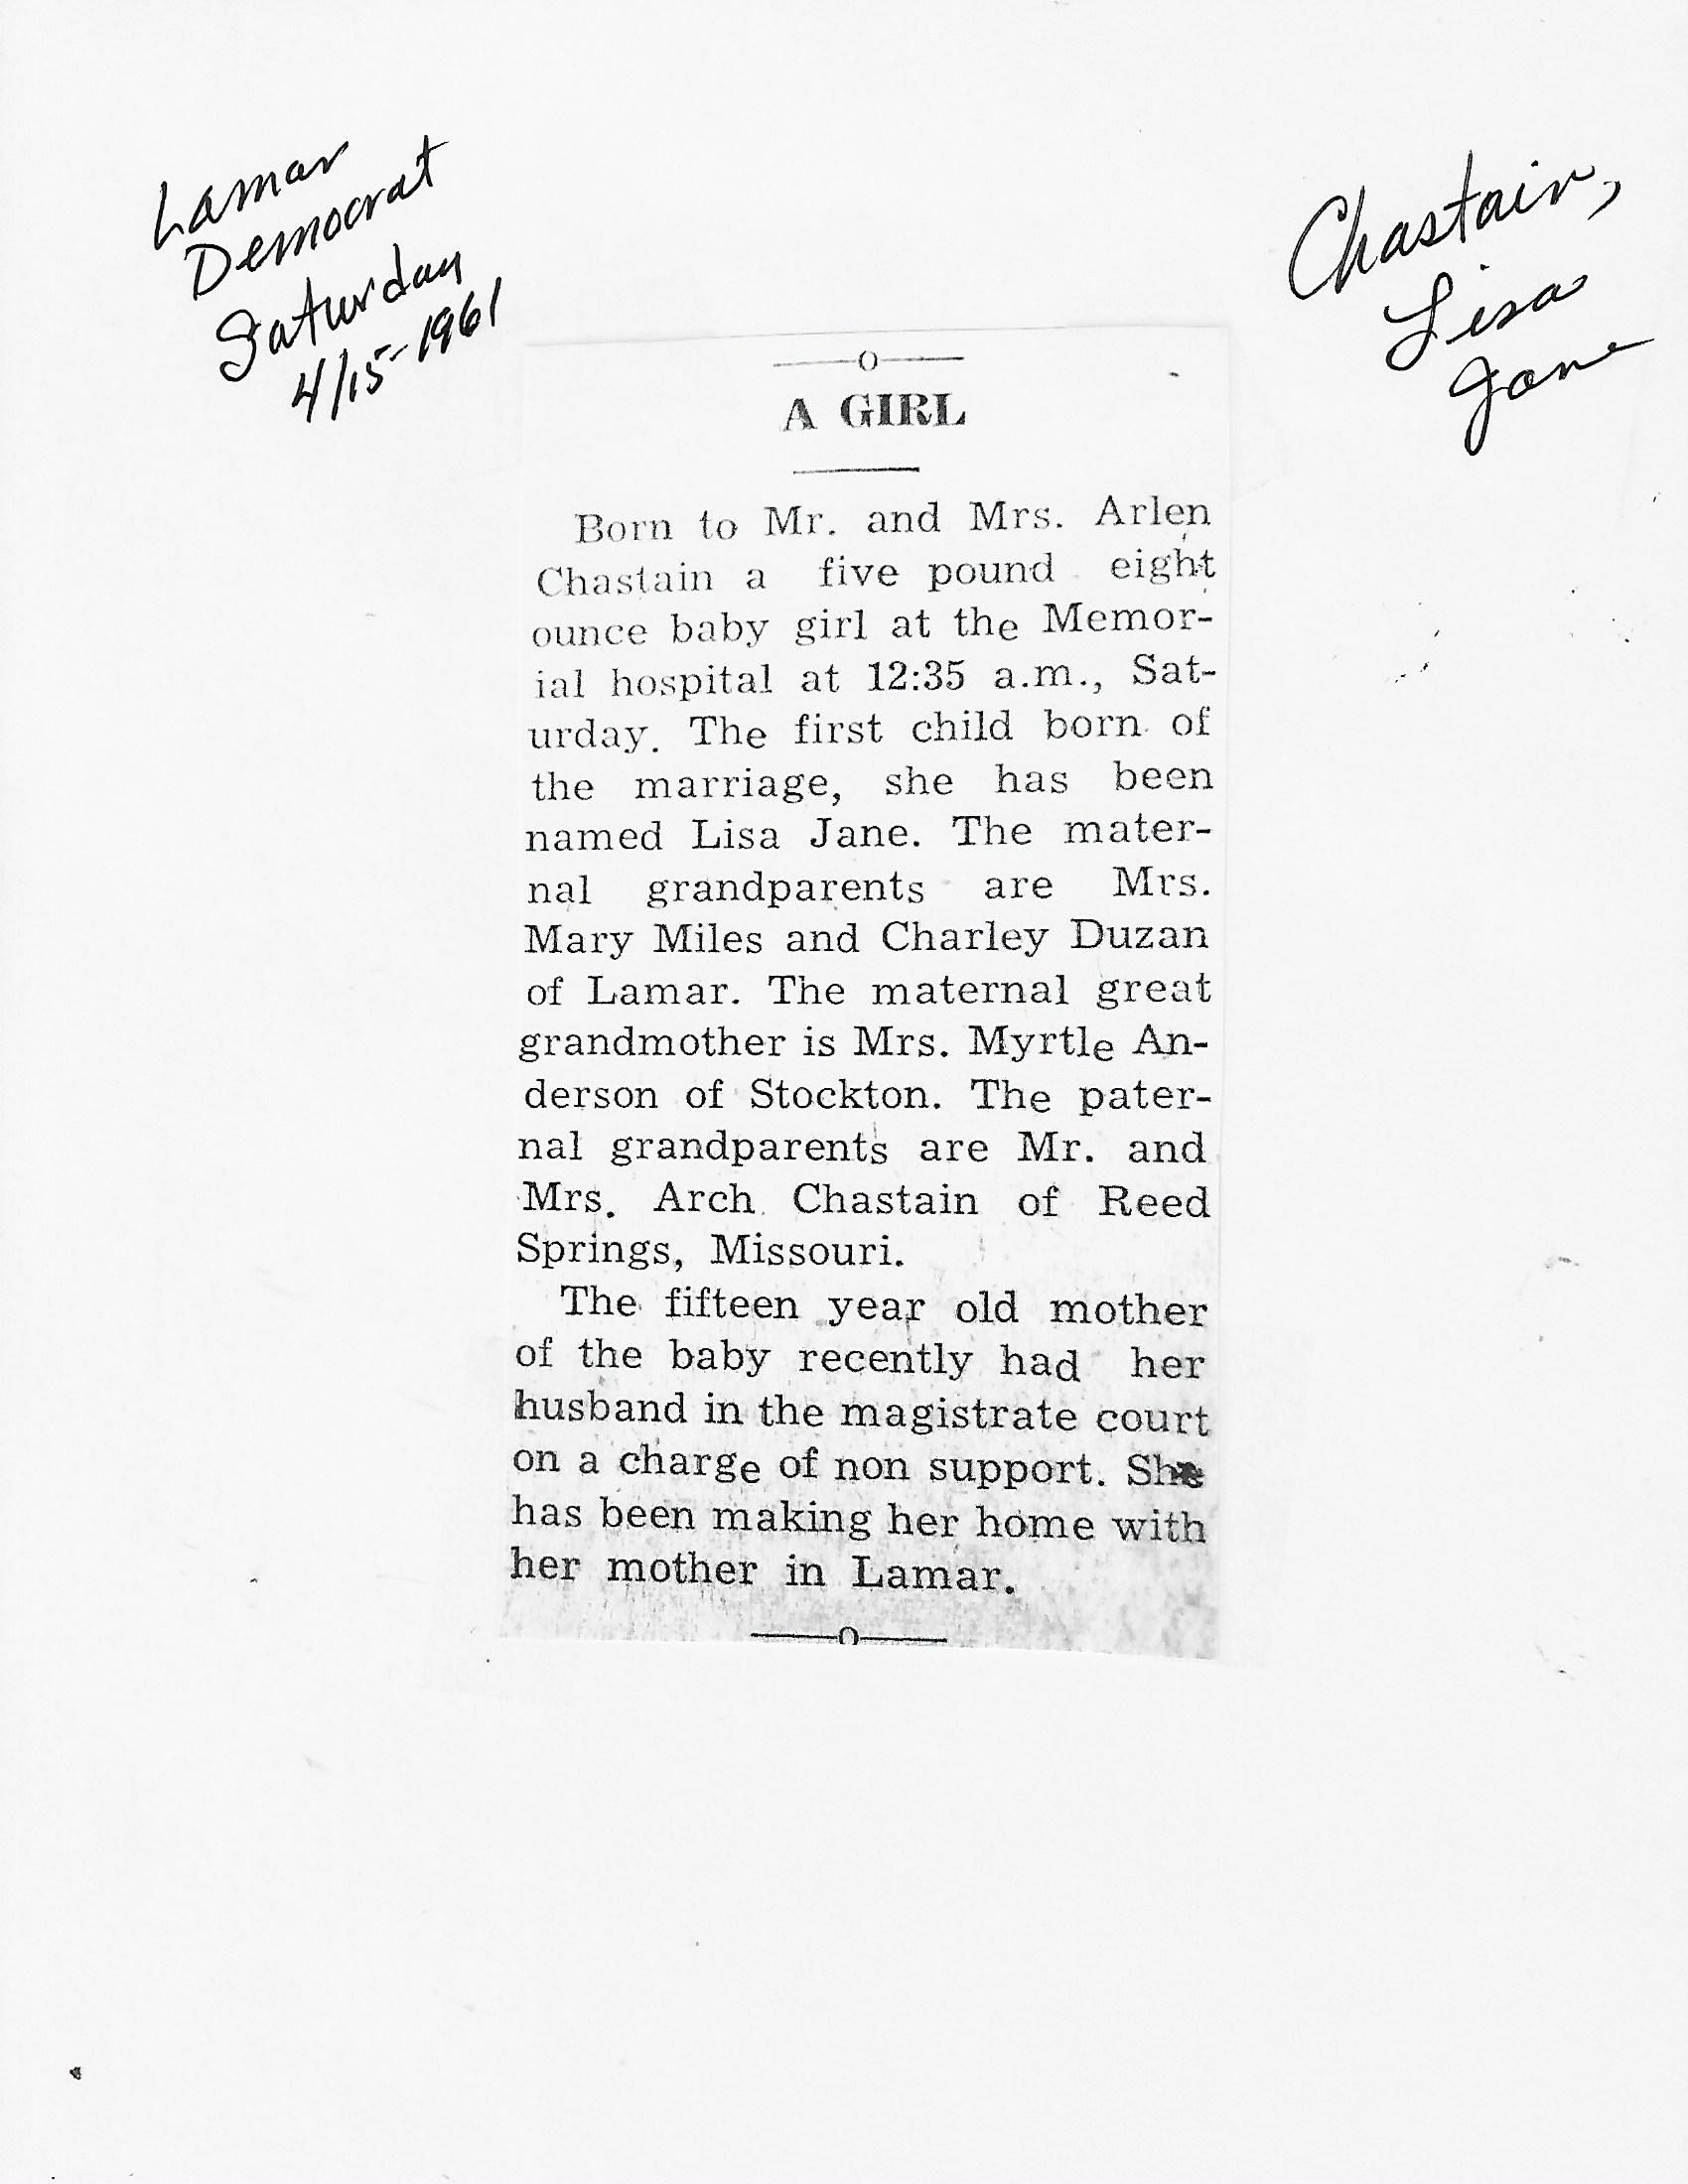 Lamar
Democrat
Saturday
4/15-1961
Chastain,
Lisa
Jane
A GIRL
Born to Mr. and Mrs. Arlen
Chastain a five pound eight
ounce baby girl at the Memor-
ial hospital at 12:35 a.m., Sat-
urday. The first child born of
the marriage, she has been
named Lisa Jane. The mater-
nal grandparents are Mrs.
Mary Miles and Charley Duzan
of Lamar. The maternal great
grandmother is Mrs. Myrtle An-
derson of Stockton. The pater-
nal grandparents are Mr. and
Mrs. Arch Chastain of Reed
Springs, Missouri.
The fifteen year old mother
of the baby recently had her
husband in the magistrate court
on a charge of non support. She
has been making her home with
her mother in Lamar.